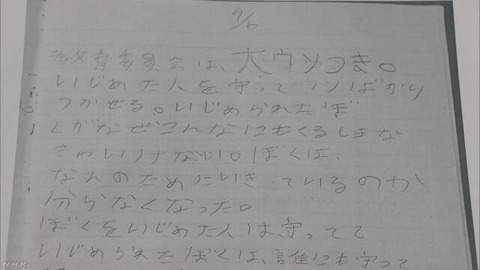 9/6
教育委員会は、大ウソつき。
いじめた人を守ってウソばかり
つかせる。いじめられたぼ
くがなぜこんなにもくるしまな
きゃいけない。ぼくは、
なんのためにいきているのか
分らなくなった。
ぼくをいじめた人は守ってて
いじめられたぼくは、誰にも守って
NHK